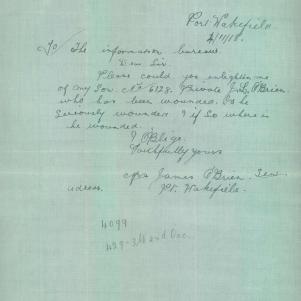 Port Wakefield
4/11/18.
To The information bureau.
Dear Sir
Please could you enlighten me
of my Son. No 6128. Private J. O'Brien
who has been wounded. Is he
seriously wounded & if so where is
he wounded.
I. Oblige.
Faithfully yours
James O'Brien. Sen.
adress. Pt. Wakefield.
4099